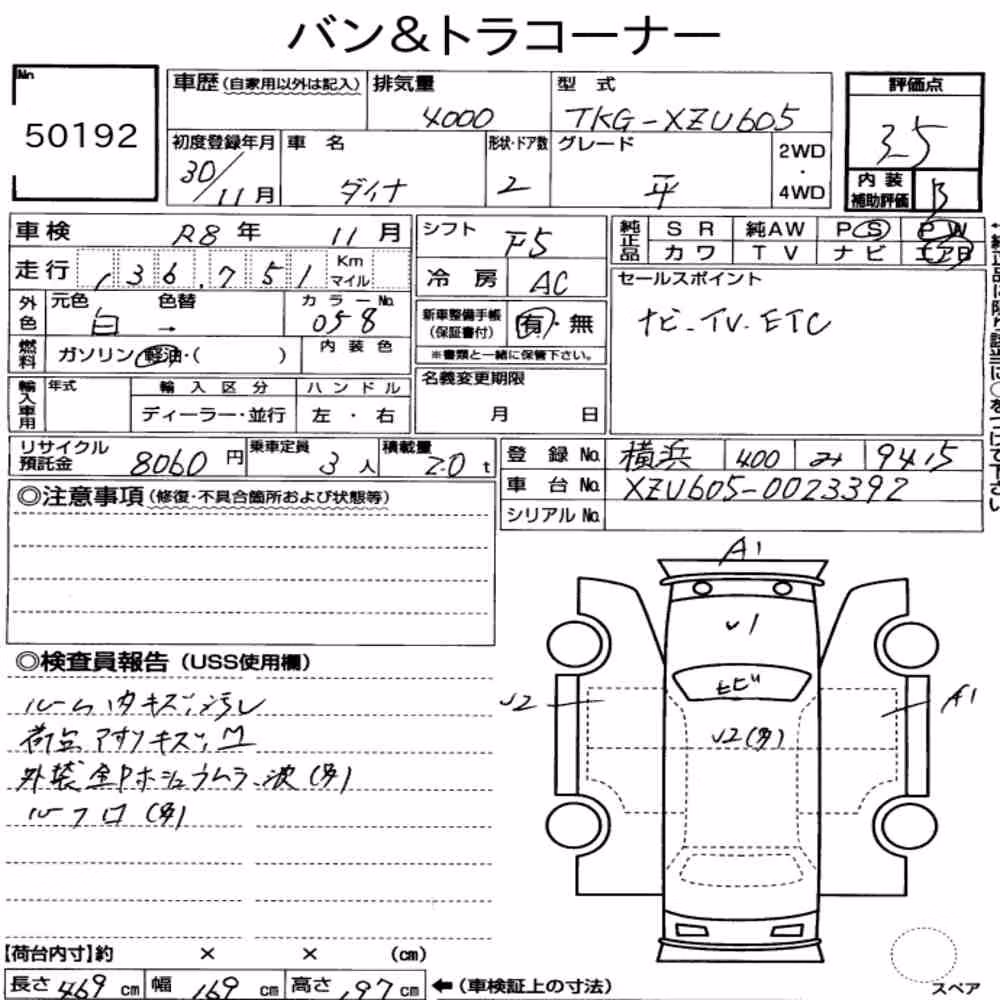 バン&トラコーナー
No. 50192
車歴(自家用以外は記入) 排気量 4000 型式 TKG-XZU605
評価点 3.5
初度登録年月 30/11月 車名 ダイナ 形状・ドア数 2 グレード 平 2WD・4WD
内装補助評価 B
車検 R8年 11月
走行 136,751 Km マイル
外色 元色 白 色替 → カラーNo. 058
燃料 ガソリン・軽油・( ) 内装色
輸入車用 年式 輸入区分 ディーラー・並行 ハンドル 左・右
シフト F5
冷房 AC
新車整備手帳(保証書付) 有・無
※書類と一緒に保管下さい。
名義変更期限 月 日
純正品 SR 純AW PS PW
カワ TV ナビ エアB
セールスポイント
ナビ-TV.ETC
←純正品に限り該当に○をつけて下さい
リサイクル預託金 8060円 乗車定員 3人 積載量 2.0t
登録No. 横浜 400 み 9415
車台No. XZU605-0023392
シリアルNo.
◎注意事項(修復・不具合箇所および状態等)
◎検査員報告(USS使用欄)
ルーム内キズ,汚レ
荷台アオリキズ,凹
外装全Pホシュウムラ、波(多)
ルーフ口(多)
A1
U1
ヒビ
U2
U2(多)
A1
【荷台内寸】約 × × (cm)
長さ 469 cm 幅 169 cm 高さ 197 cm ←(車検証上の寸法)
スペア